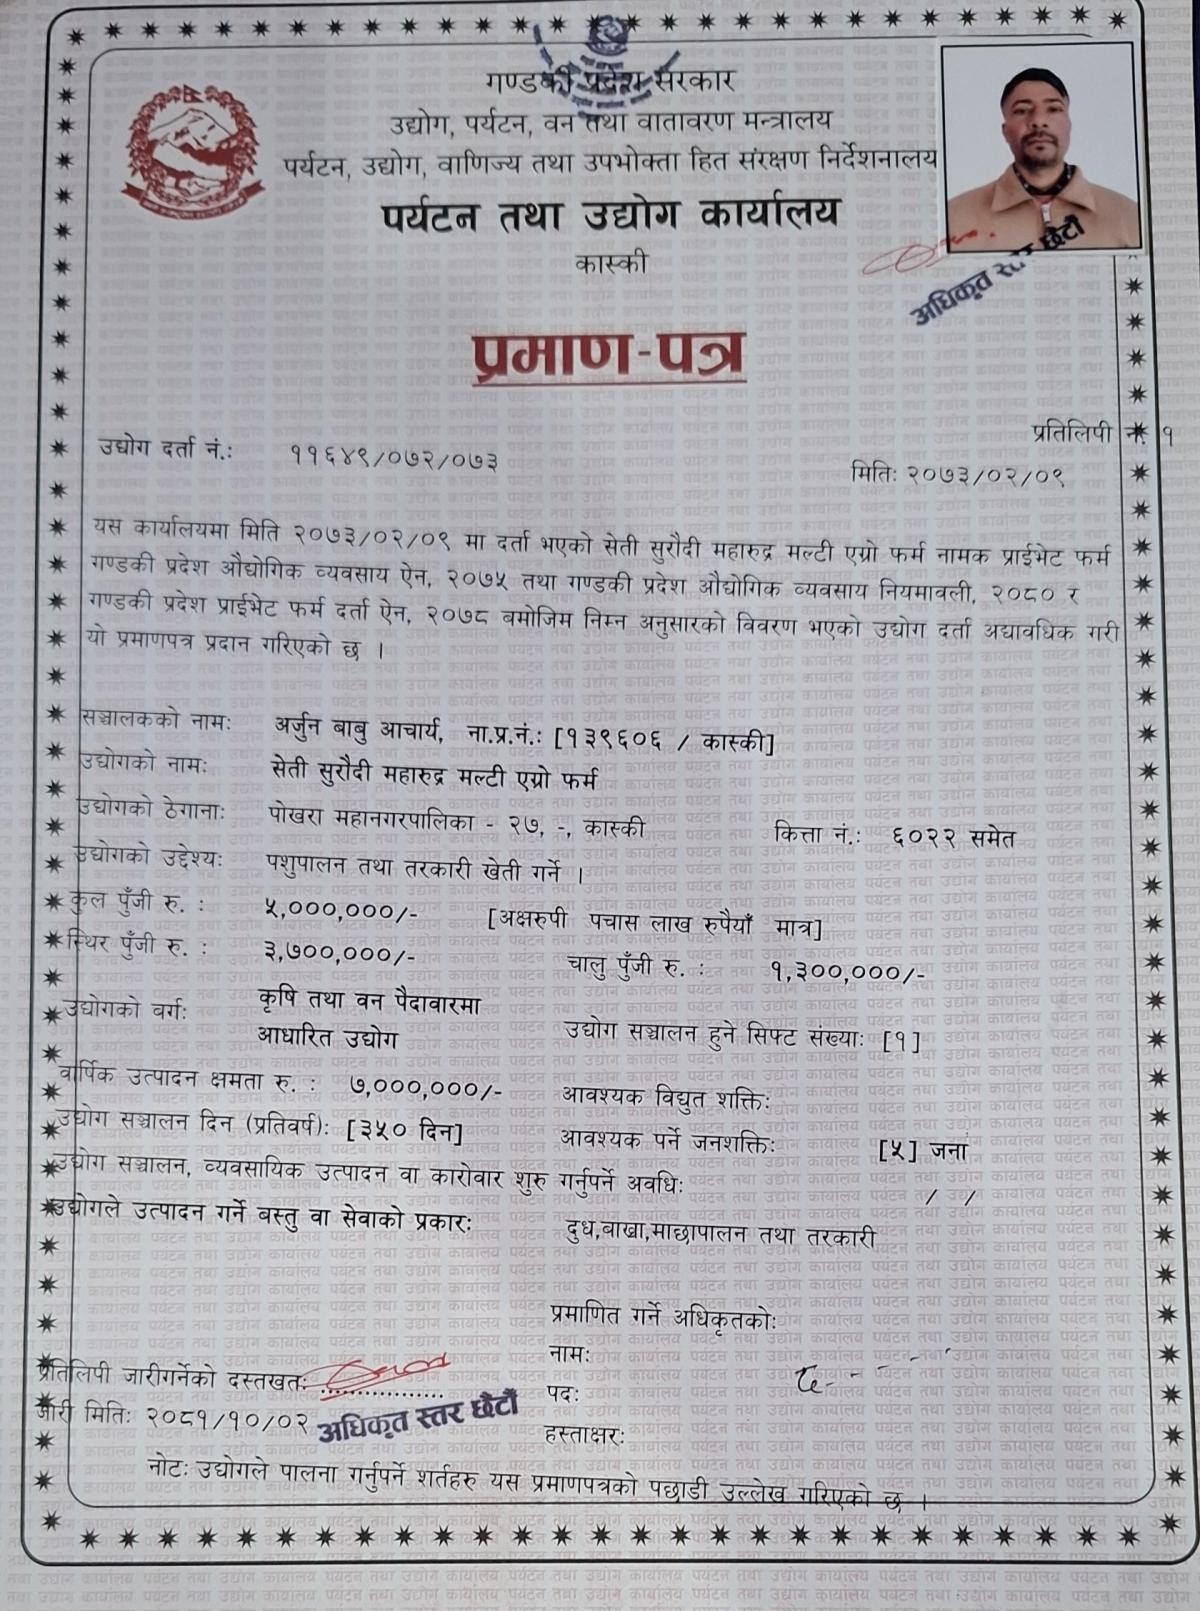 गण्डकी प्रदेश सरकार
उद्योग, पर्यटन, वन तथा वातावरण मन्त्रालय
पर्यटन, उद्योग, वाणिज्य तथा उपभोक्ता हित संरक्षण निर्देशनालय
पर्यटन तथा उद्योग कार्यालय
कास्की
अधिकृत स्तर छैटौं
प्रमाण-पत्र
प्रतिलिपी नं. १
उद्योग दर्ता नं.: ११६४९/०७२/०७३
मिति: २०७३/०२/०९
यस कार्यालयमा मिति २०७३/०२/०९ मा दर्ता भएको सेती सुरौदी महारुद्र मल्टी एग्रो फर्म नामक प्राईभेट फर्म
गण्डकी प्रदेश औद्योगिक व्यवसाय ऐन, २०७५ तथा गण्डकी प्रदेश औद्योगिक व्यवसाय नियमावली, २०८० र
गण्डकी प्रदेश प्राईभेट फर्म दर्ता ऐन, २०७८ बमोजिम निम्न अनुसारको विवरण भएको उद्योग दर्ता अद्यावधिक गरी
यो प्रमाणपत्र प्रदान गरिएको छ ।
सञ्चालकको नाम: अर्जुन बाबु आचार्य, ना.प्र.नं.: [१३९६०६ / कास्की]
उद्योगको नाम: सेती सुरौदी महारुद्र मल्टी एग्रो फर्म
उद्योगको ठेगाना: पोखरा महानगरपालिका - २७, -, कास्की कित्ता नं.: ६०२२ समेत
उद्योगको उद्देश्य: पशुपालन तथा तरकारी खेती गर्ने ।
कुल पुँजी रु. : ५,०००,०००/- [अक्षरुपी पचास लाख रुपैयाँ मात्र]
स्थिर पुँजी रु. : ३,७००,०००/- चालु पुँजी रु. : १,३००,०००/-
उद्योगको वर्ग: कृषि तथा वन पैदावारमा
आधारित उद्योग उद्योग सञ्चालन हुने सिफ्ट संख्या: [१]
वार्षिक उत्पादन क्षमता रु. : ७,०००,०००/- आवश्यक विद्युत शक्ति:
उद्योग सञ्चालन दिन (प्रतिवर्ष): [३५० दिन] आवश्यक पर्ने जनशक्ति: [५] जना
उद्योग सञ्चालन, व्यवसायिक उत्पादन वा कारोवार शुरु गर्नुपर्ने अवधि: / /
उद्योगले उत्पादन गर्ने बस्तु वा सेवाको प्रकार: दुध,बाख्रा,माछापालन तथा तरकारी
प्रमाणित गर्ने अधिकृतको:
नाम:
प्रतिलिपी जारीगर्नेको दस्तखत: ..................
पद:
जारी मिति: २०८१/१०/०२ अधिकृत स्तर छैटौं
हस्ताक्षर:
नोट: उद्योगले पालना गर्नुपर्ने शर्तहरु यस प्रमाणपत्रको पछाडी उल्लेख गरिएको छ ।